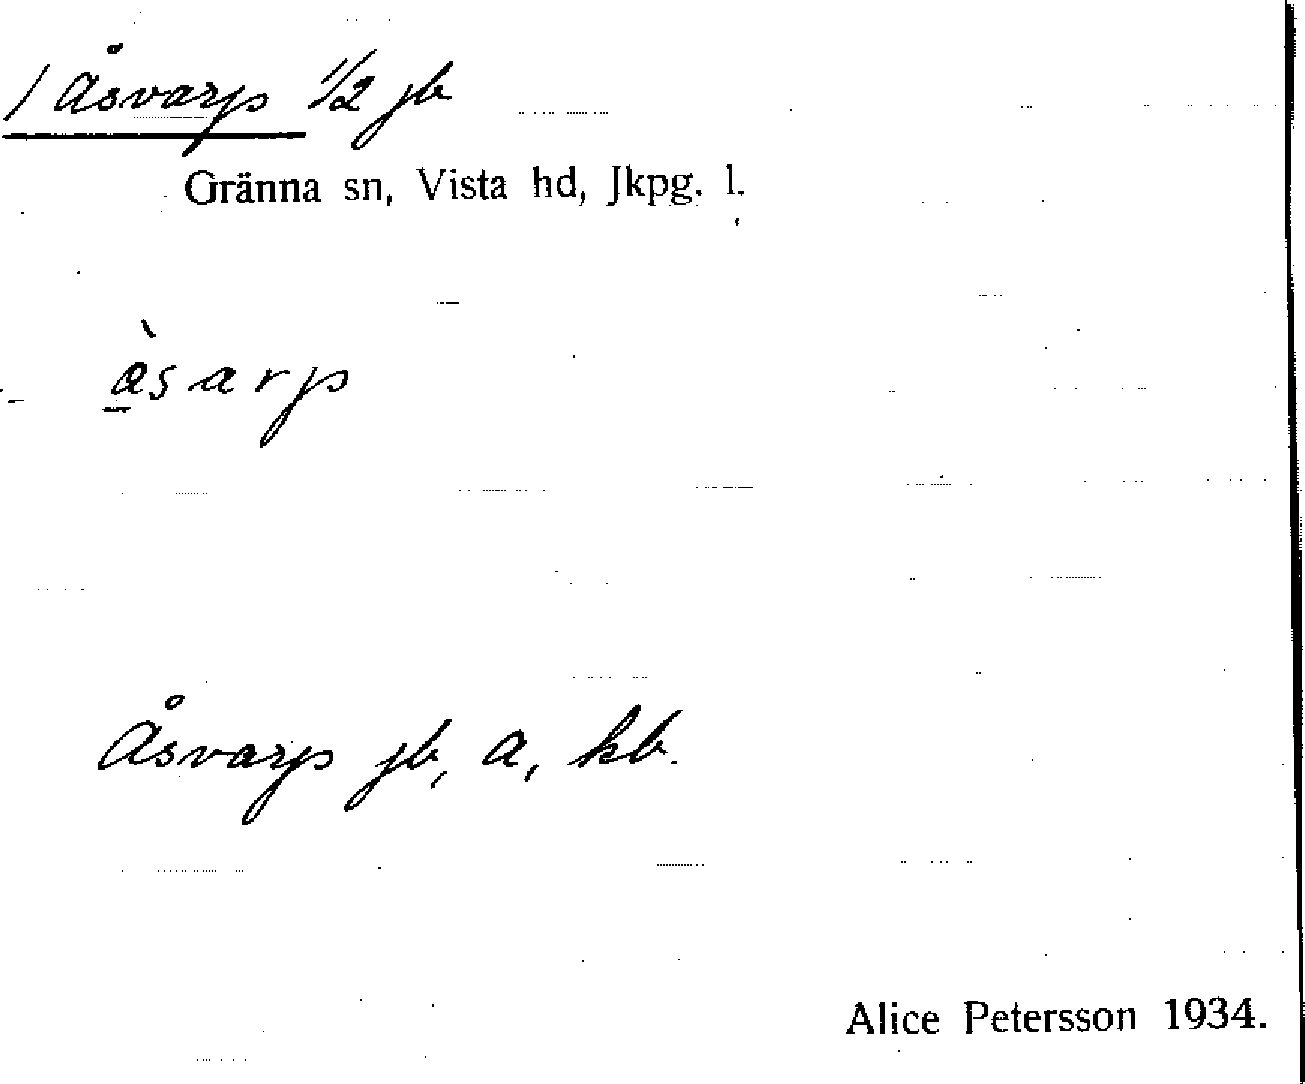 / Åsvarp 1/2 jb
Gränna sn, Vista hd, Jkpg. l.
åsarp
Åsvarp jb, a, kb.
Alice Petersson 1934.